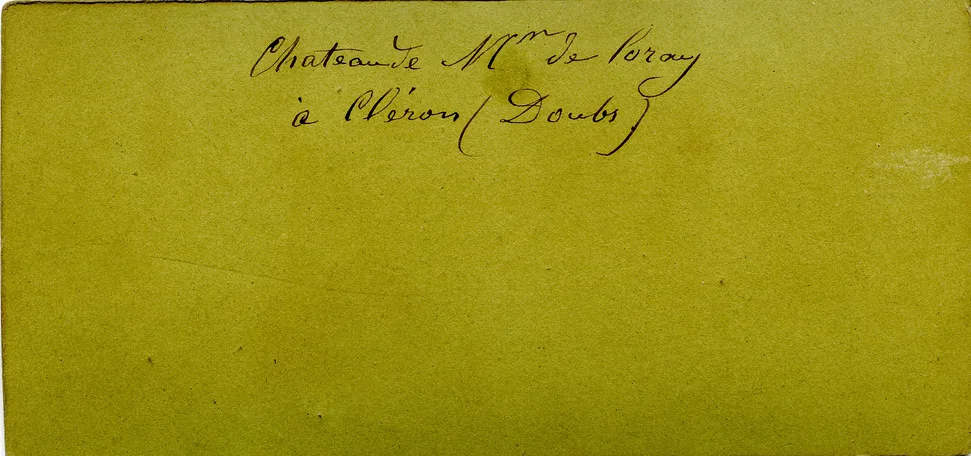 Chateau de Mr de Loray
à Cléron (Doubs)